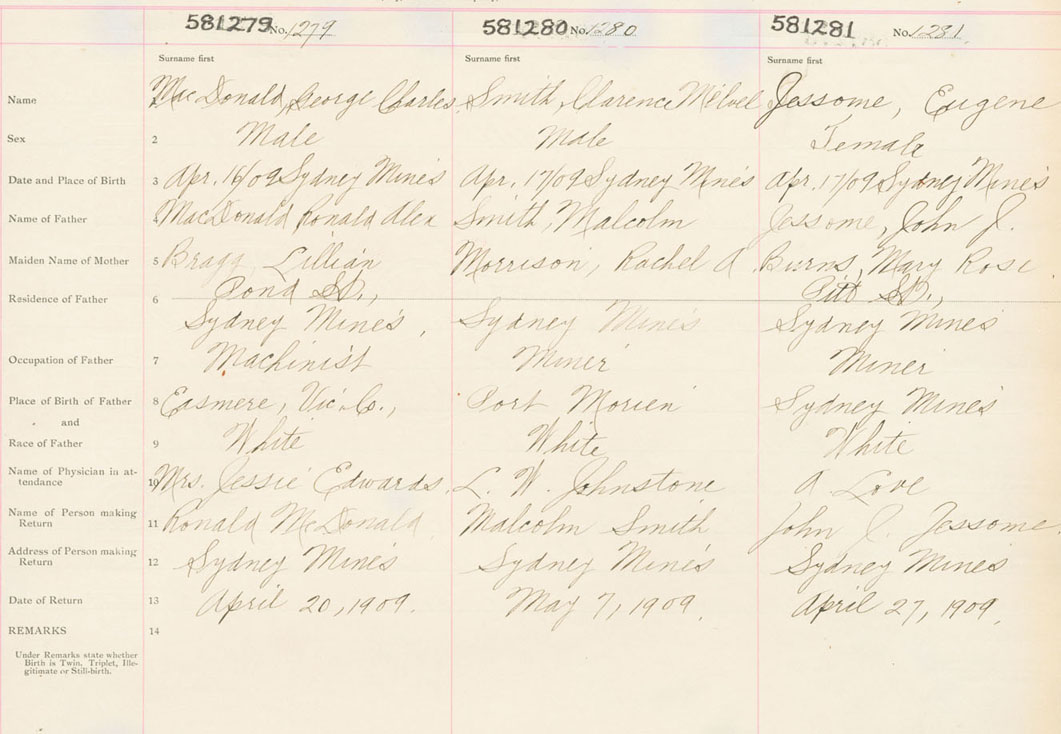 581279 No. 1279 581280 No. 1280 581281 No. 1281
Surname first Surname first Surname first
Name MacDonald, George Charles Smith, Clarence Jessome, Eugene
Sex 2 Male Male Female
Date and Place of Birth 3 Apr. 16/09 Sydney Mines Apr. 17/09 Sydney Mines Apr. 17/09 Sydney Mines
Name of Father MacDonald Ronald Alex Smith, Malcolm Jessome, John J.
Maiden Name of Mother 5 Bragg, Lillian Morrison, Rachel A Burns, Mary Rose
Pond St., Pitt St.,
Residence of Father 6
Sydney Mines, Sydney Mines Sydney Mines
Occupation of Father 7 Machinist Miner Miner
Place of Birth of Father 8 Easmere, Vic. Co., Port Morien Sydney Mines
and
Race of Father 9 White White White
Name of Physician in at-
tendance 10 Mrs. Jessie Edwards. L. W. Johnstone A Love
Name of Person making
Return 11 Ronald McDonald Malcolm Smith John J. Jessome
Address of Person making
Return 12 Sydney Mines Sydney Mines Sydney Mines
Date of Return 13 April 20, 1909. May 7, 1909. April 27, 1909.
REMARKS 14
Under Remarks state whether
Birth is Twin, Triplet, Ille-
gitimate or Still-birth.